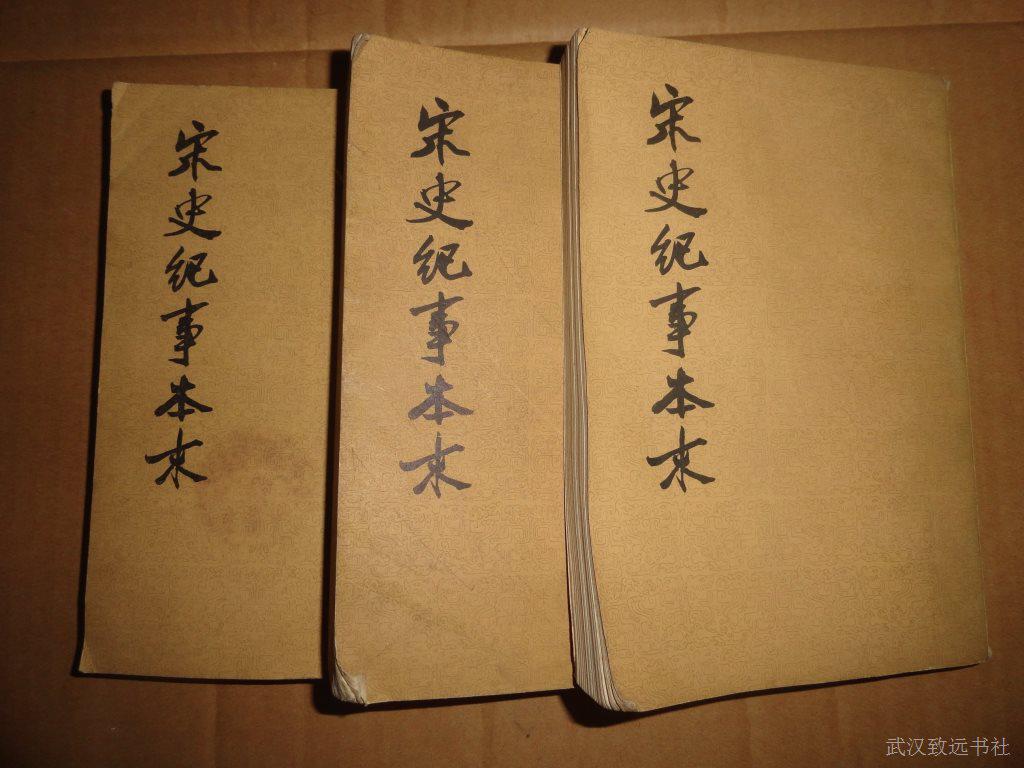 宋史纪事本末
宋史纪事本末
宋史纪事本末
武汉致远书社